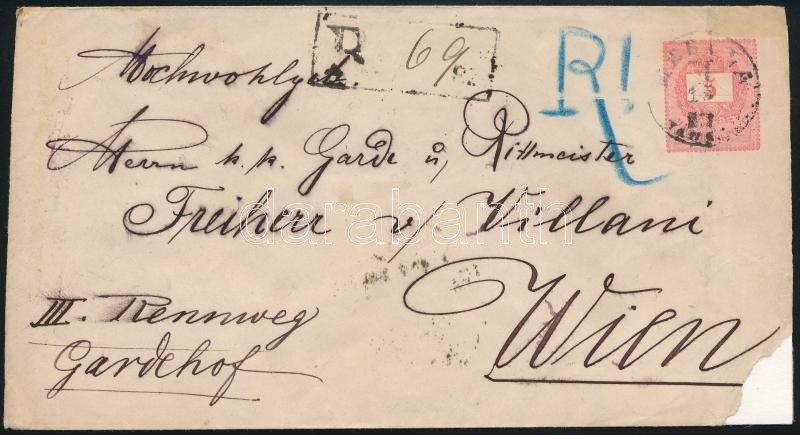 R 69
R!
Hochwohlgeb.
Herrn k. k. Garde u, Rittmeister
Freiherr v/ Villani
darabanth
III. Rennweg
Wien
Gardehof